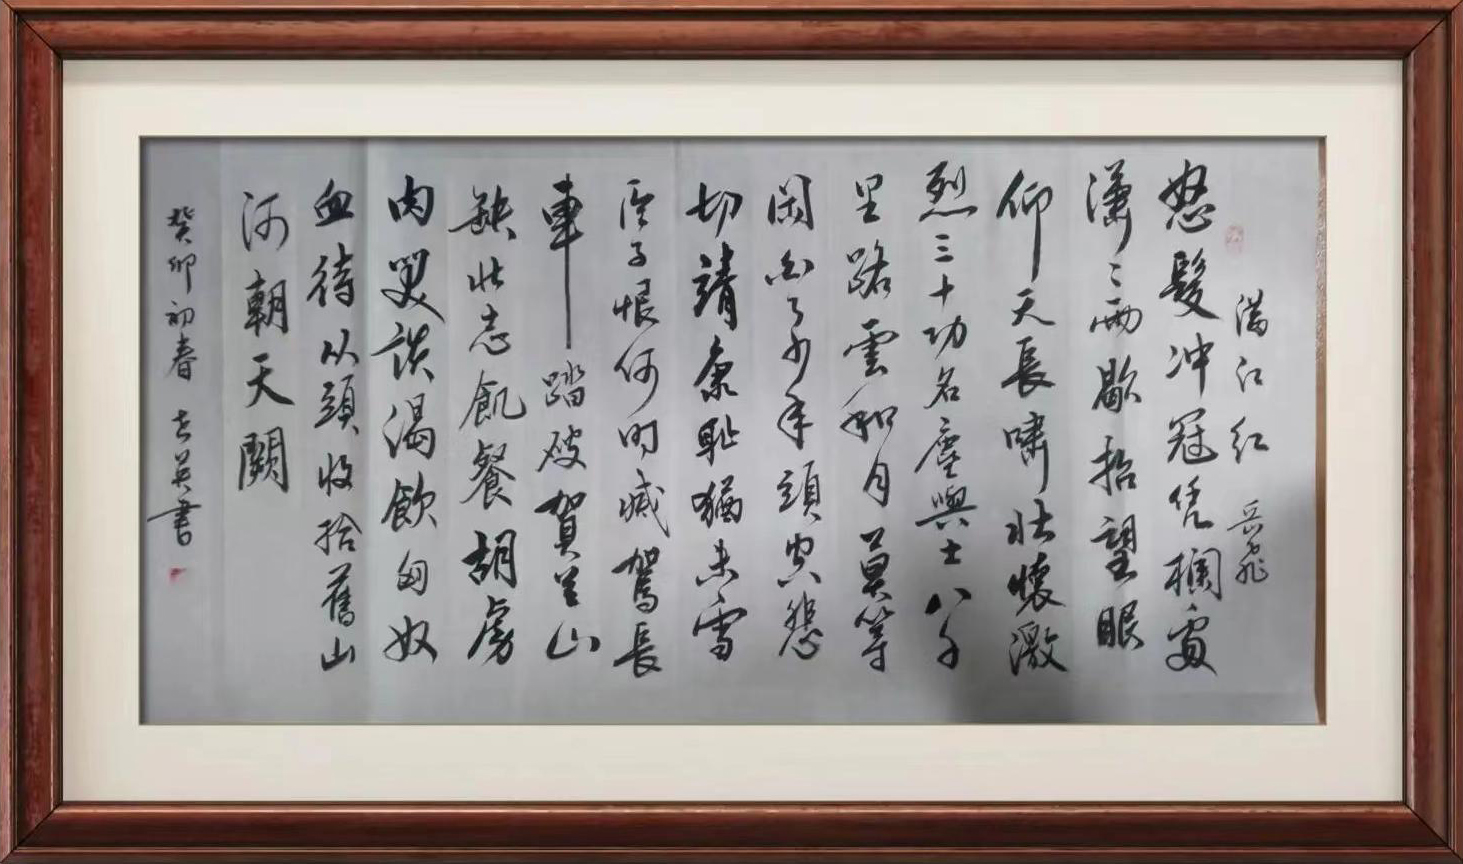 满江红 岳飛
怒髮冲冠凭欄處
瀟々雨歇抬望眼
仰天長嘯壯懷激
烈三十功名塵與土八千
里路雲和月莫等
閑白了少年頭空悲
切靖康耻猶未雪
臣子恨何时滅駕長
車踏破賀兰山
缺壯志飢餐胡虜
肉笑談渴飲匈奴
血待从頭收拾舊山
河朝天闕
癸卯初春 英書